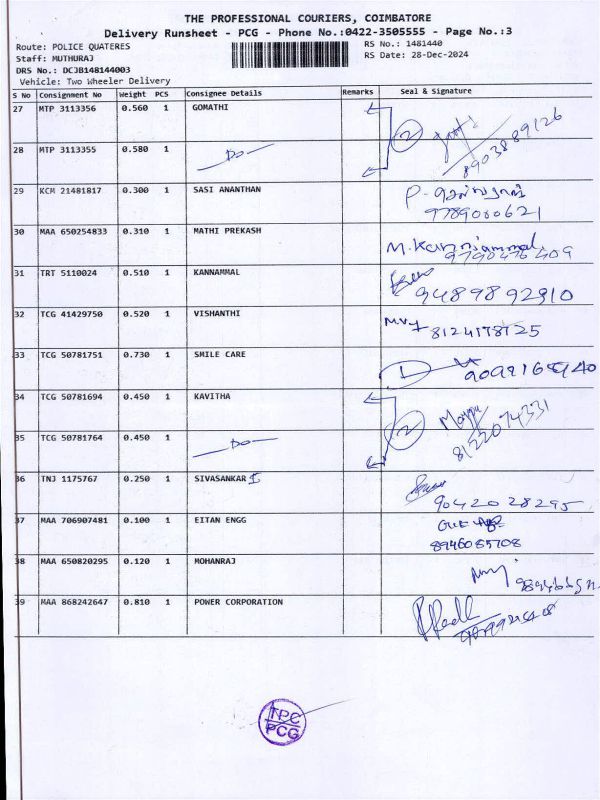 THE PROFESSIONAL COURIERS, COIMBATORE
Delivery Runsheet - PCG - Phone No.:0422-3505555 - Page No.:3
Route: POLICE QUATERES
RS No.: 1481440
Staff: MUTHURAJ
RS Date: 28-Dec-2024
DRS No.: DCJB148144003
Vehicle: Two Wheeler Delivery
S No Consignment No Weight PCS Consignee Details Remarks Seal & Signature
27 MTP 3113356 0.560 1 GOMATHI
2 8903889126
28 MTP 3113355 0.580 1 Do
29 KCM 21481817 0.300 1 SASI ANANTHAN
9789060621
30 MAA 650254833 0.310 1 MATHI PREKASH M. Kanniammal
9790476409
31 TRT 5110024 0.510 1 KANNAMMAL
9489892910
32 TCG 41429750 0.520 1 VISHANTHI
8124178725
33 TCG 50781751 0.730 1 SMILE CARE
34 TCG 50781694 0.450 1 KAVITHA
2 8122074331
35 TCG 50781764 0.450 1 Do
36 TNJ 1175767 0.250 1 SIVASANKAR I
9042028295
37 MAA 706907481 0.100 1 EITAN ENGG
8946085708
38 MAA 650820295 0.120 1 MOHANRAJ
39 MAA 868242647 0.810 1 POWER CORPORATION
TPC
PCG